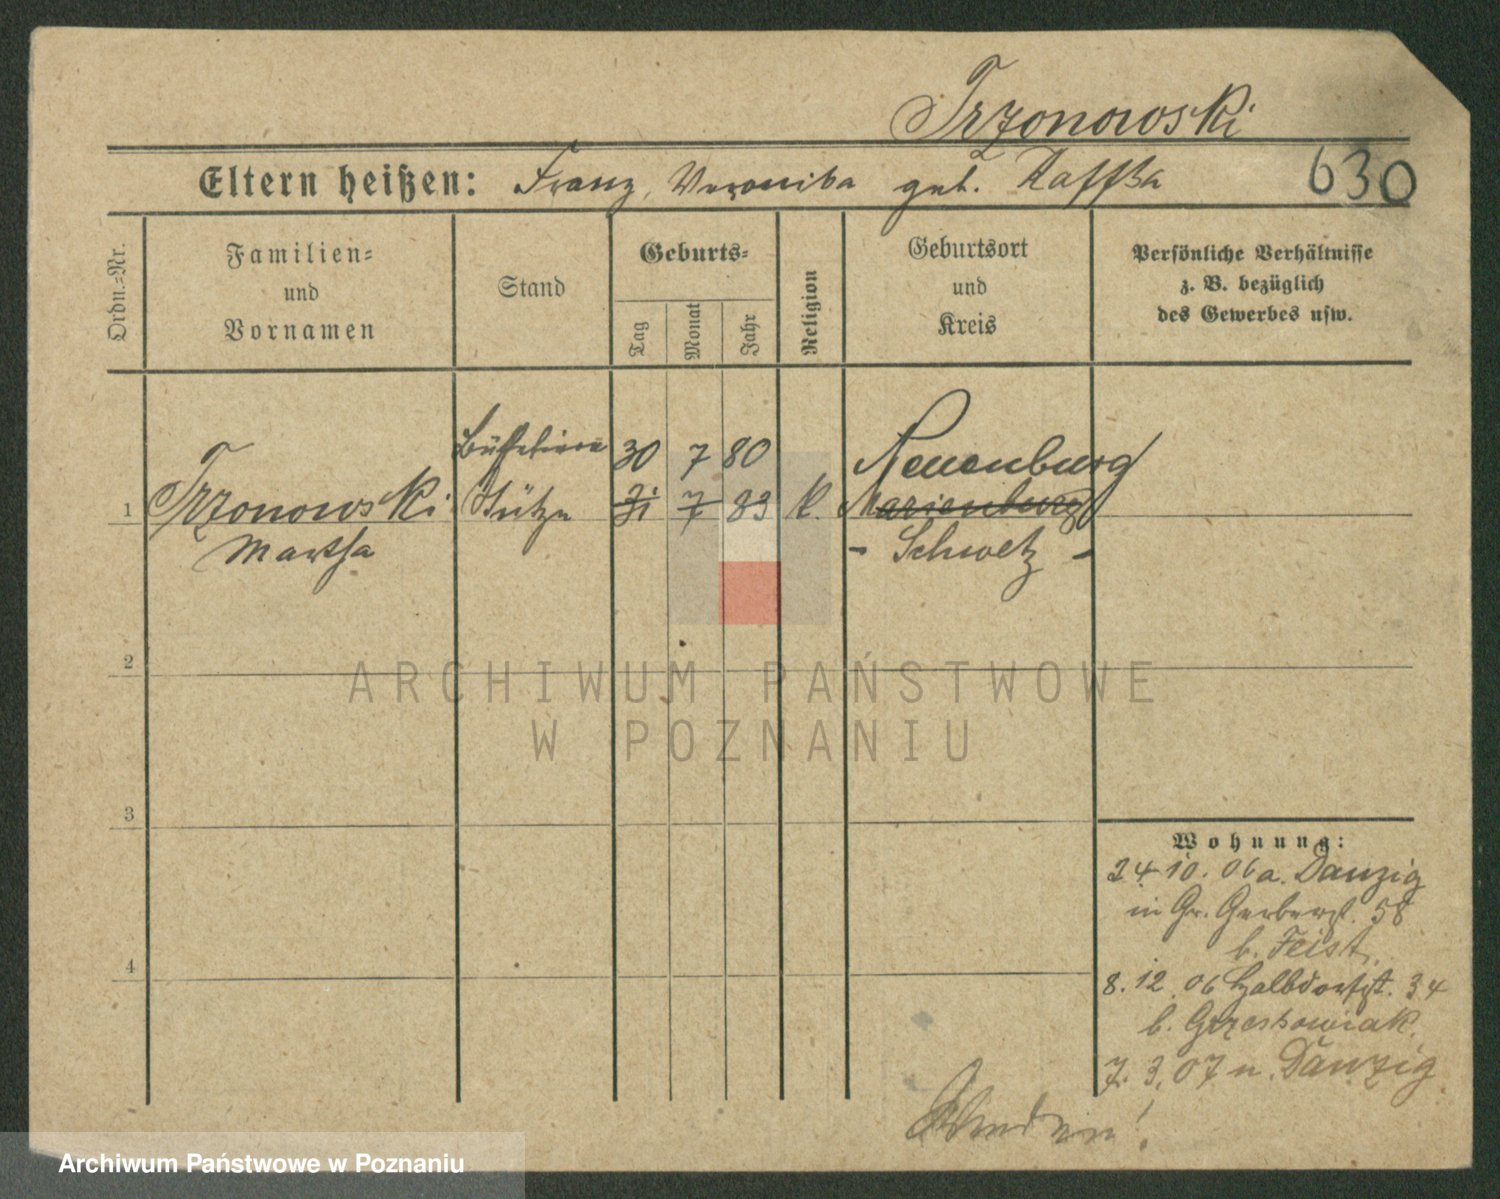 Trzonowski
Eltern heißen: Franz, Veronika geb. Raffka
630
Ordn.-Nr.
Familien-
und
Vornamen
Stand
Geburts-
Tag
Monat
Jahr
Religion
Geburtsort
und
Kreis
Persönliche Verhältnisse
z. B. bezüglich
des Gewerbes usw.
Büffetiere 30 7 80 Neuenburg
1 Trzonowski Stütze 31 7 83 k. Marienburg
Martha - Schwetz -
2
ARCHIWUM PAŃSTWOWE
W POZNANIU
3
Wohnung:
24 10. 06 a. Danzig
in Gr. Gerberst. 58
b. Feist.
4
8. 12. 06 Halbdorfst. 34
b. Grzeskowiak.
7. 3. 07 n. Danzig
Archiwum Państwowe w Poznaniu